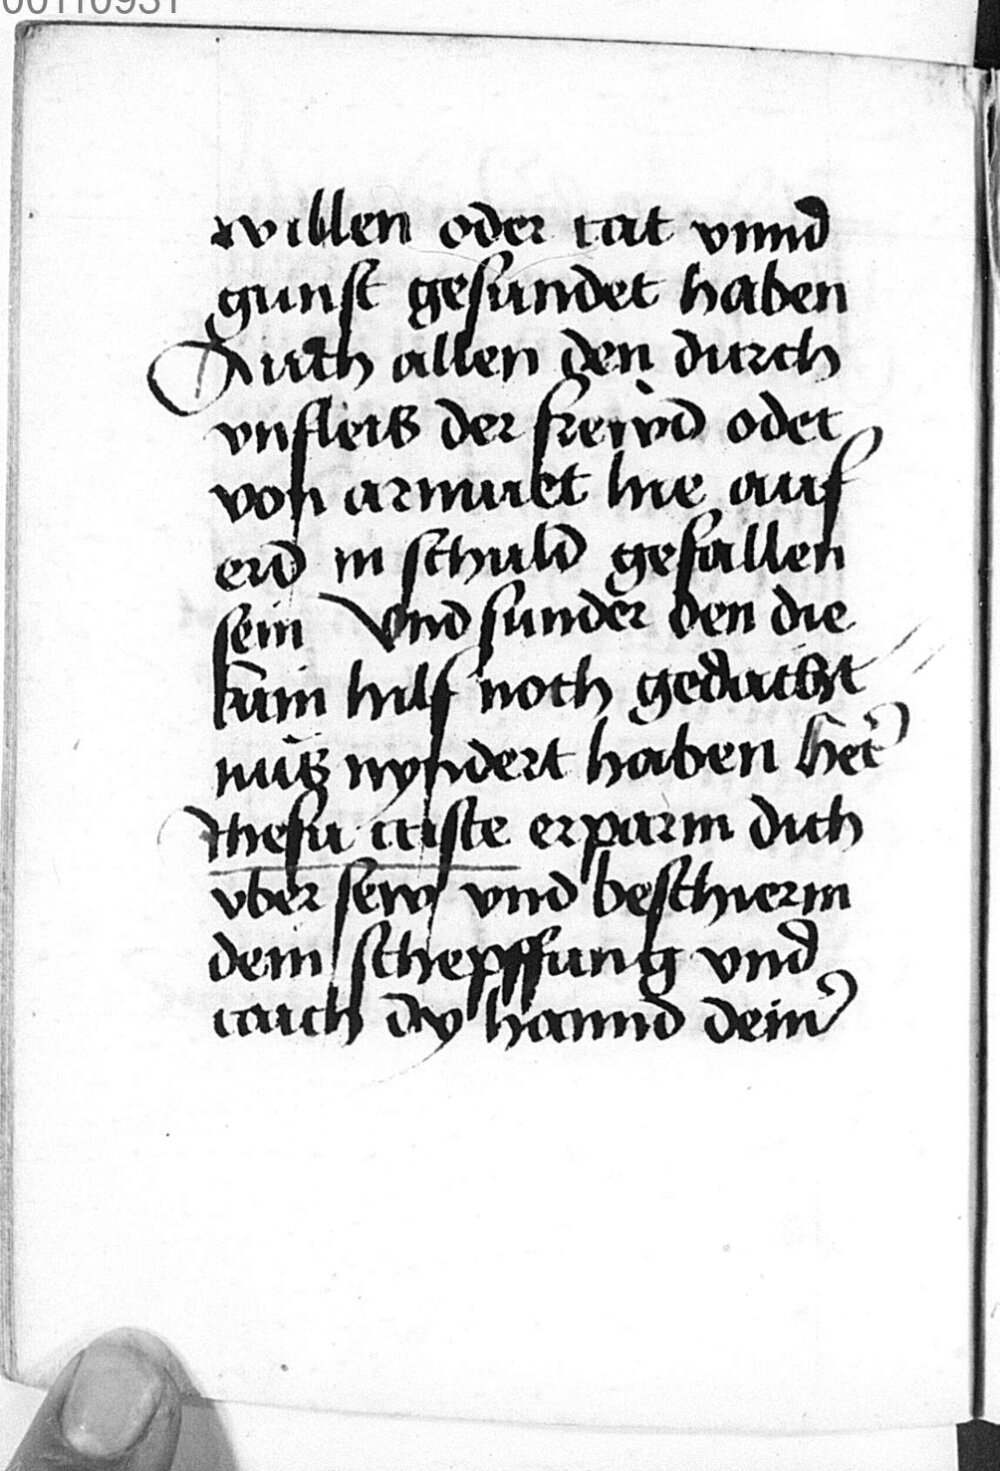 00110931
willen oder tat vnnd
gunst gesundet haben
Auch allen den durch
vnfleis der frewnd oder
von armuet hie auf
erd in schuld gefallen
sein Vnd sunder den die
kain hilf noch gedacht
nus nyndert haben Her
Ihesu criste erparm dich
vber sew vnd beschierm
dein schepffung vnd
rauch dy hannd deiner